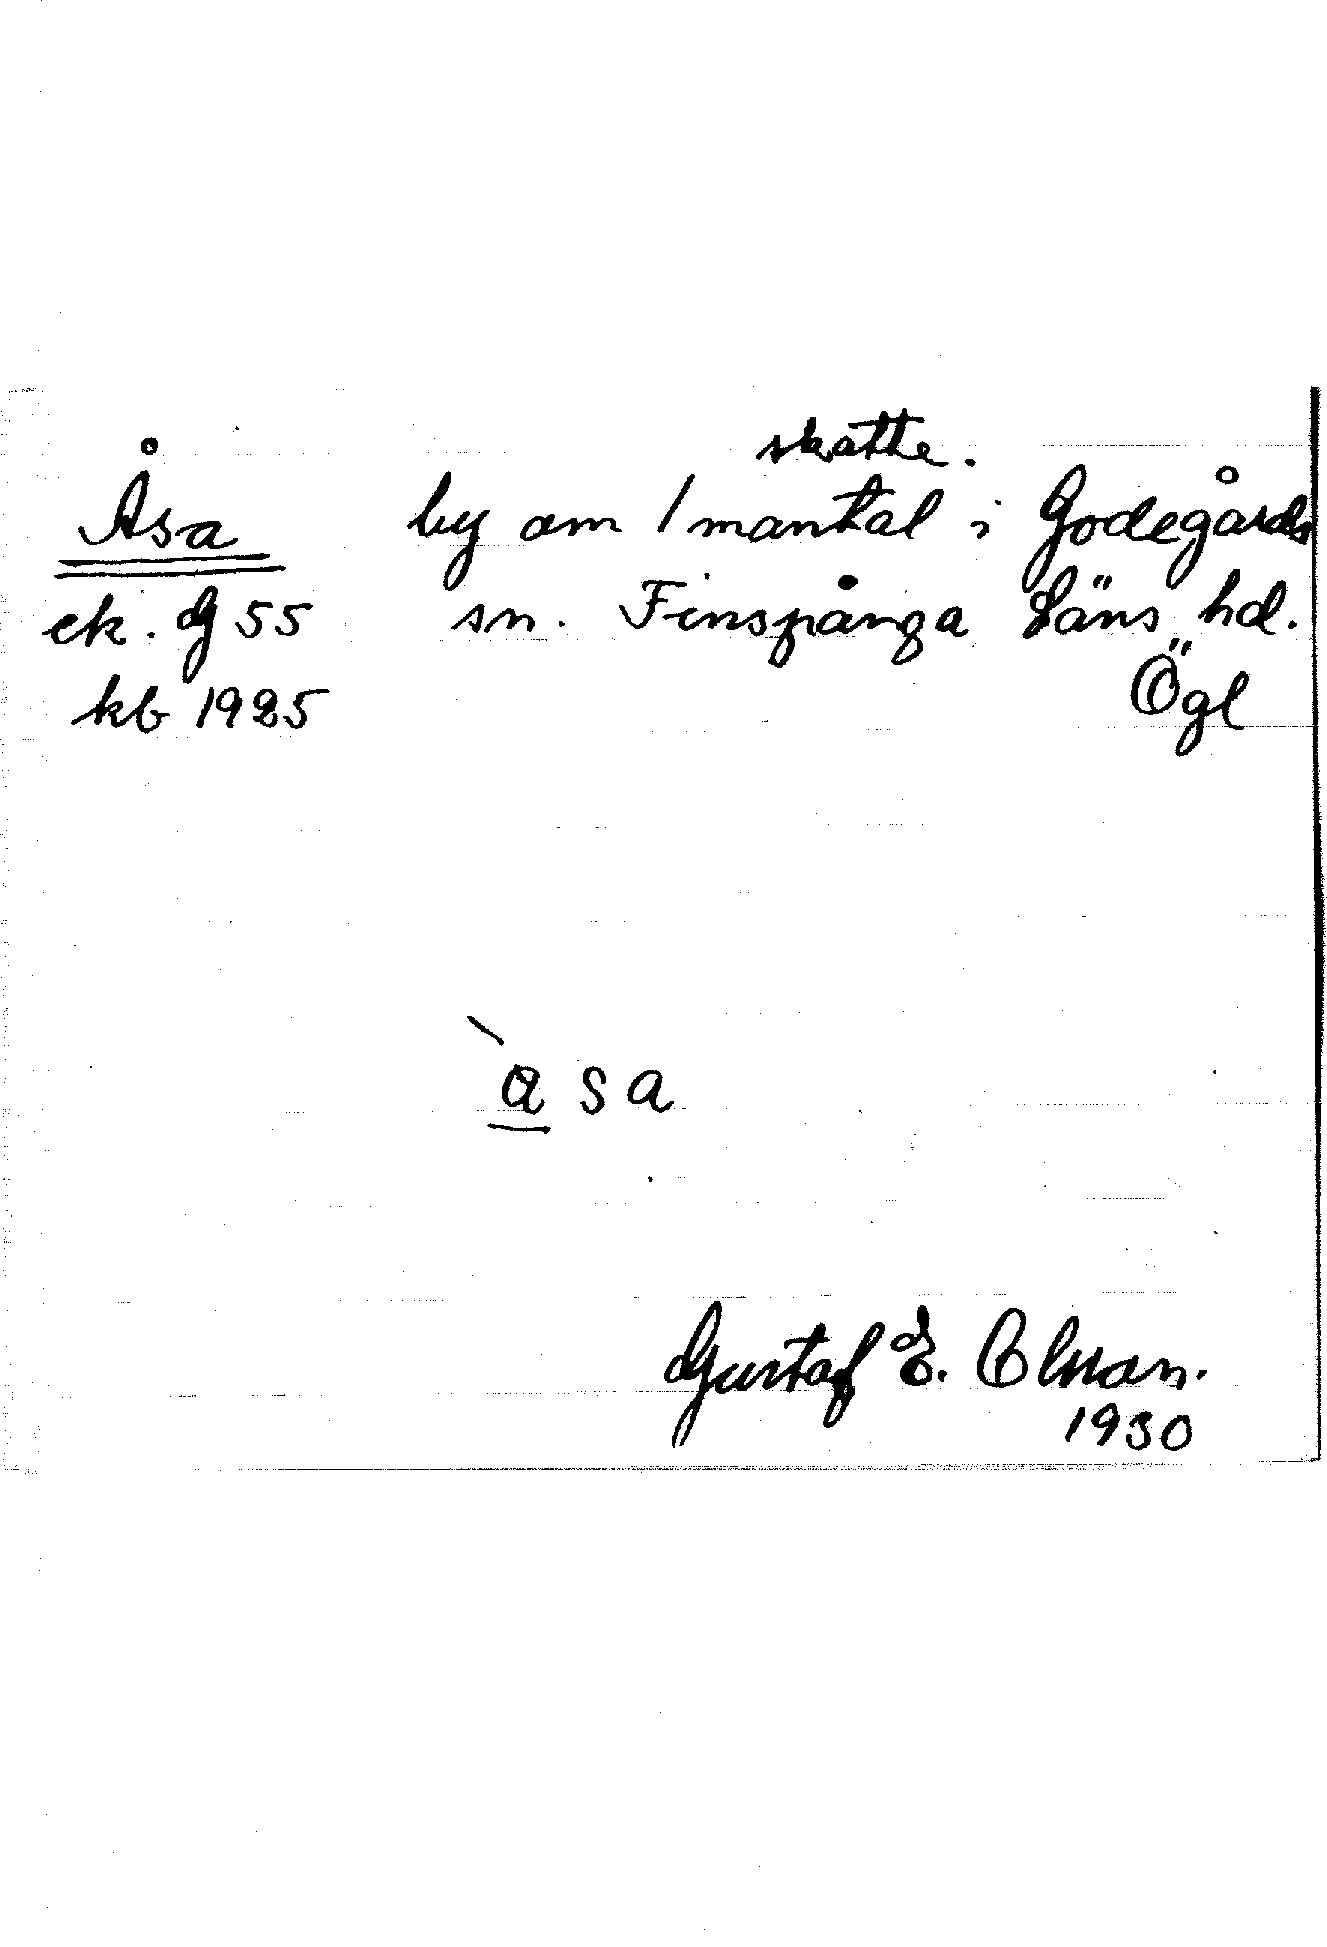 Åsa
ek. G 55
kb 1925
skatte.
by om 1 mantal i Godegårds
sn. Finspånga Läns hd.
Ögl
`a s a
Gustaf E. Olsson.
1930